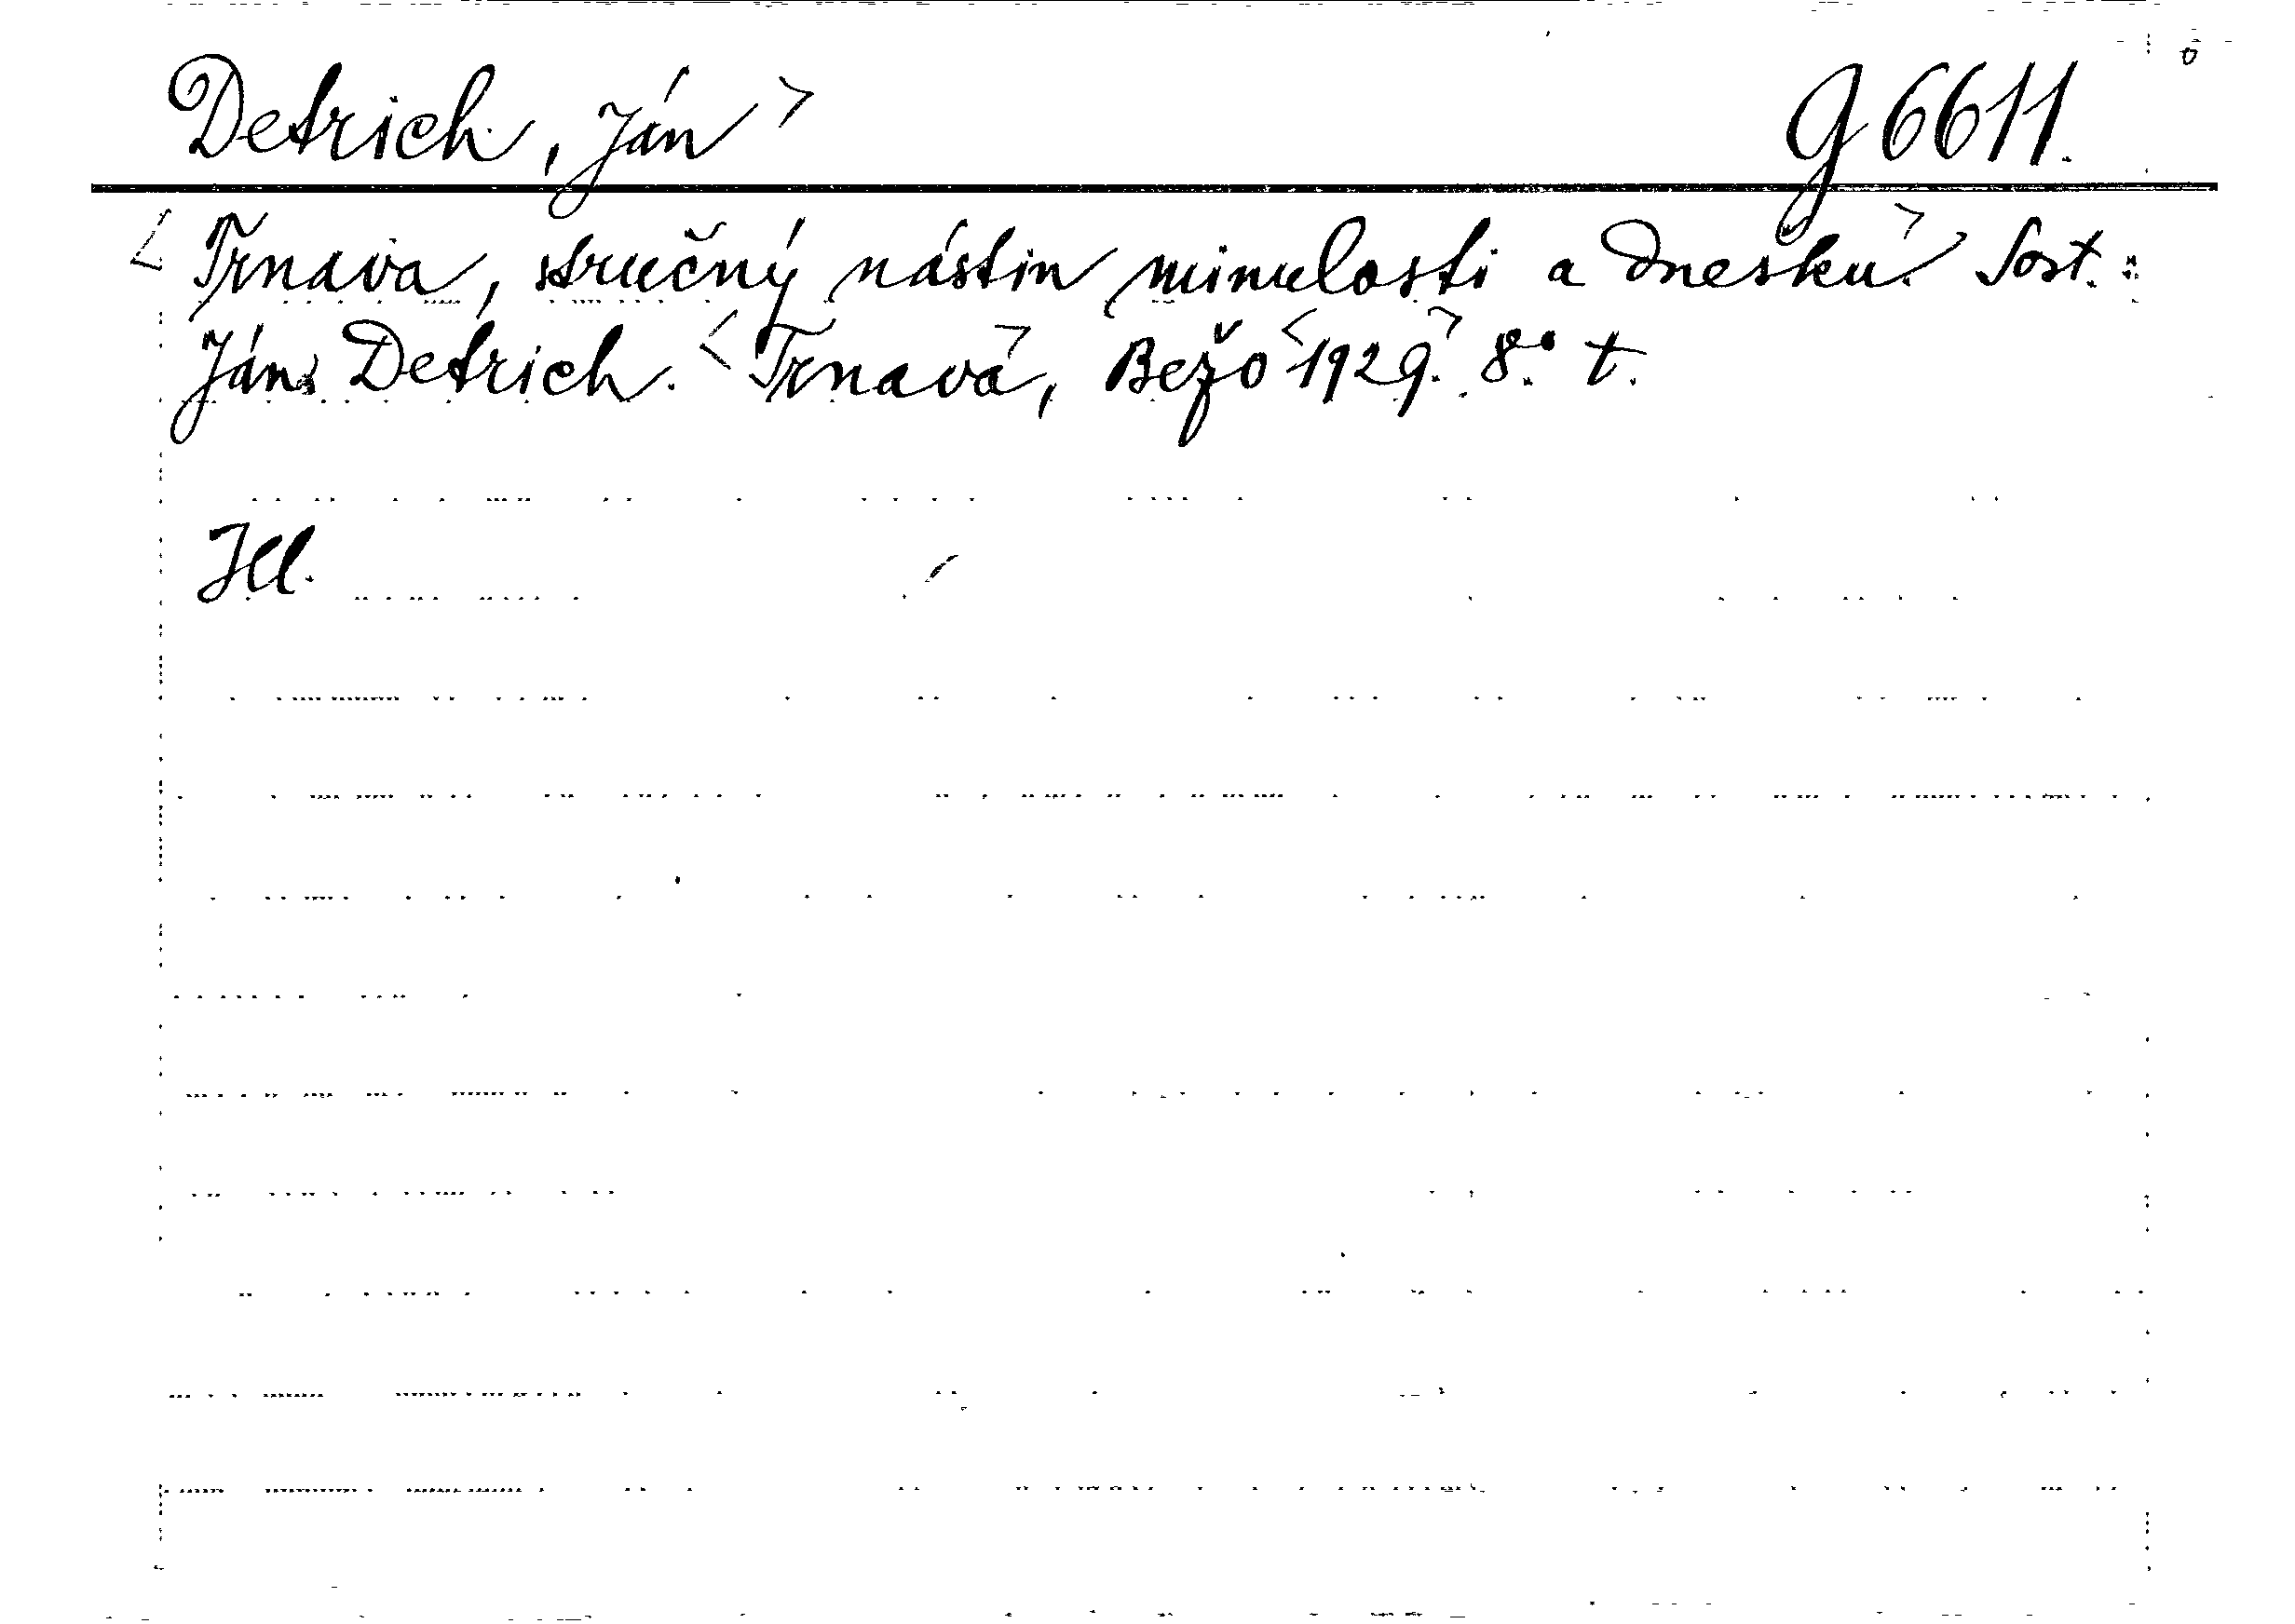 Detrich, Ján> G 6611.
<Trnava, stručný nástin minulosti a dnešku.> Sost.:
Ján Detrich. <Trnava>, Bežo <1929.> 8.° t.
Ill.